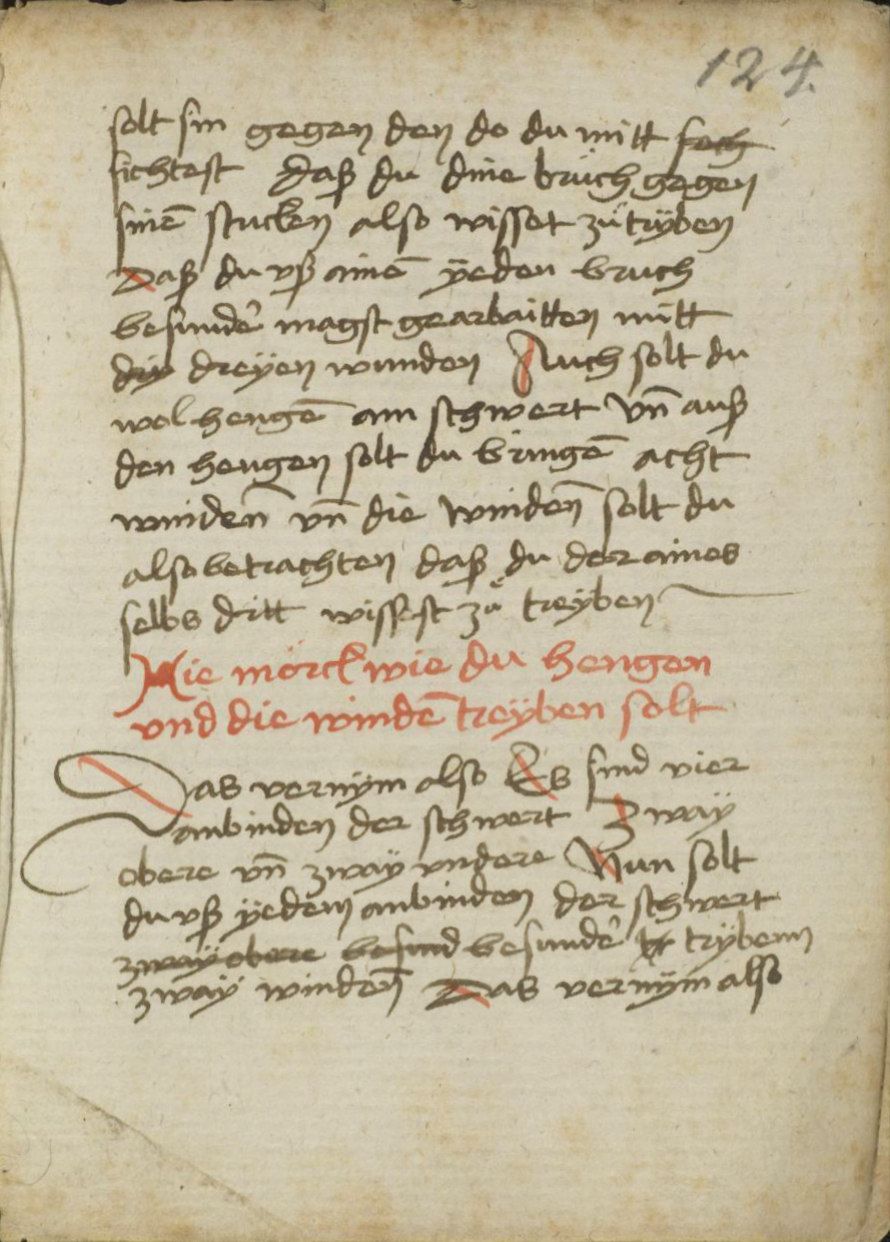 124.
solt sin gegen den do du mitt fech
fichtest daß du dine brüch gegen
sinē stucken also wisset zů tryben
Daß du uß ainē yeden bruch
besunder magst gearbaitten mitt
dry dreyen wunden Auch solt du
wol hengē am schwert vn̄ auß
den hengen solt du bringē acht
windeñ vn̄ die windeñ solt du
also betrachten daß du der aines
selbs dritt wissest zů treyben
Hie mörck wie du hengen
vnd die windē treyben solt
Das vernym also Es sind vier
anbinden der schwert Zway
obere vn̄ zway vndere Nun solt
du uß yedem anbinden der schwert
zway obere besund besunder tr trybenn
zway windeñ Das vernym also